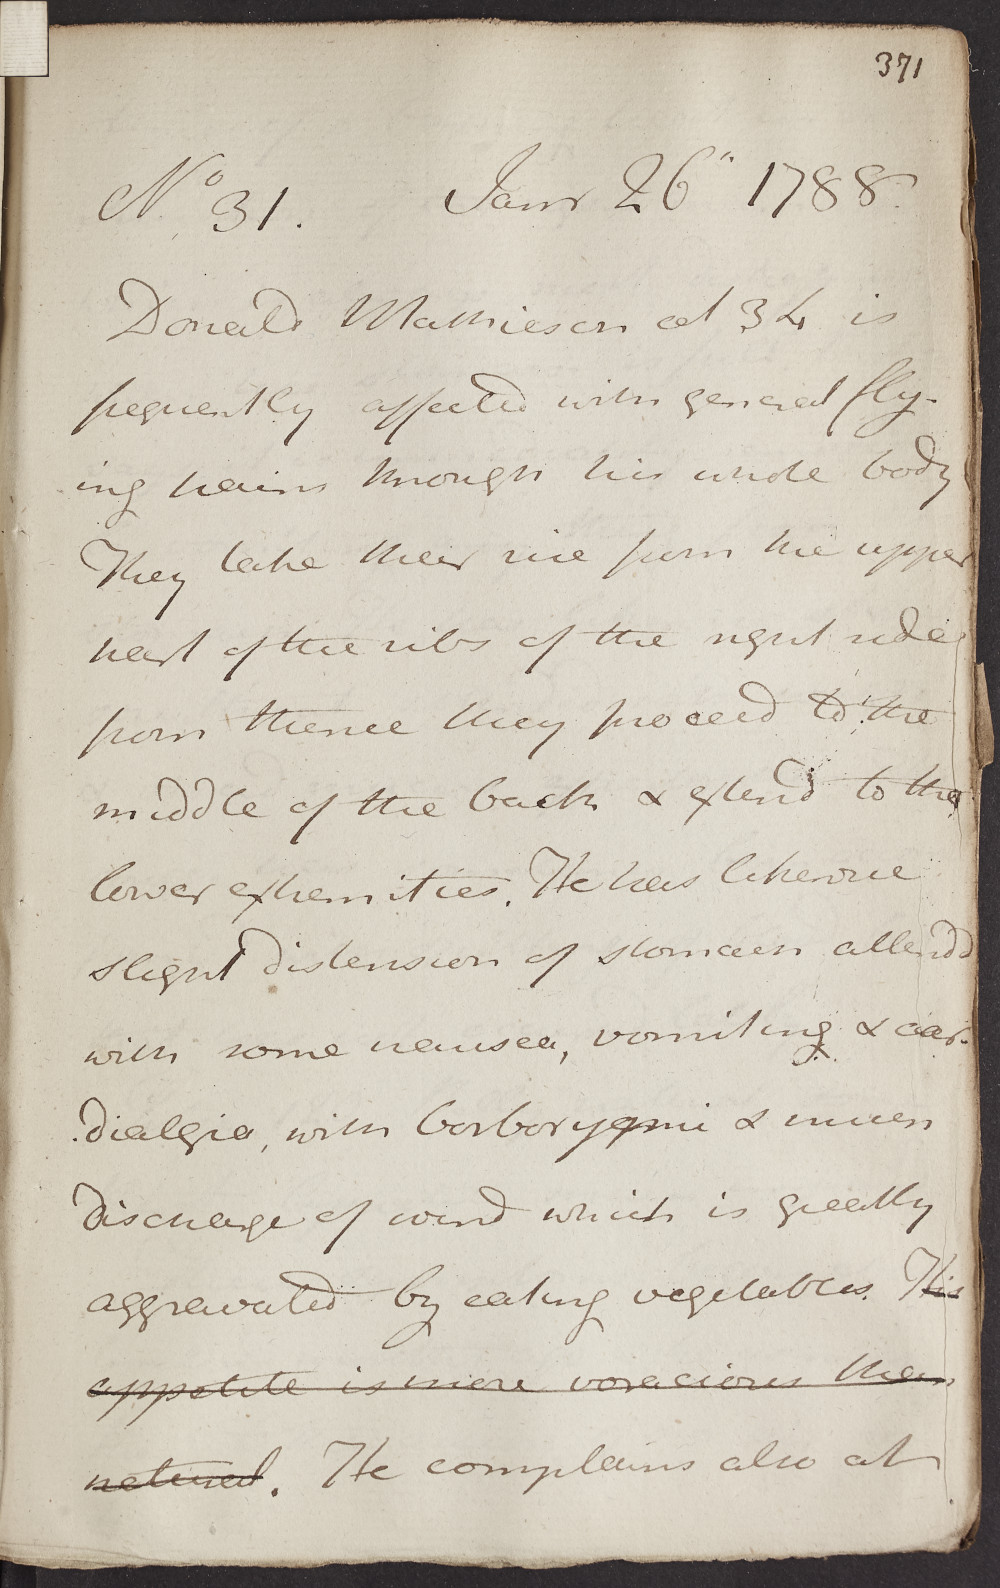 371
No 31. Janr 26" 1788.
Donald Mathieson aet 34 is
frequently affected with general fly-
ing pains through his whole body
They take their rise from the upper
part of the ribs of the right side
from thence they proceed to the
middle of the back & extend to the
lower extremities. He has likewise
slight distension of stomach attendd
with some nausea, vomiting & car-
dialgia, with borborygmi & much
discharge of wind which is greatly
aggravated by eating vegetables. His
appetite is more voracious than
natural. He complains also at